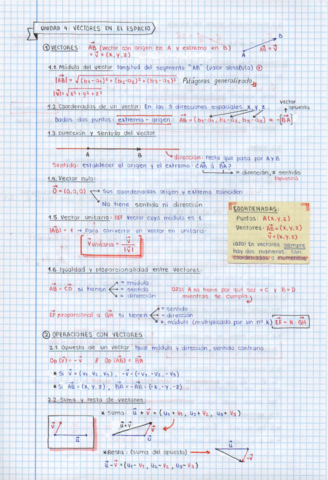 UNIDAD 4: VECTORES EN EL ESPACIO
① VECTORES AB (vector con origen en A y extremo en B)
= v = (x, y, z)
A B AB = v
1.1. Módulo del vector: longitud del segmento "AB" (valor absoluto) ⊕
|AB| = √(b₁-a₁)² + (b₂-a₂)² + (b₃-a₃)² Pitágoras generalizado
|v| = √x² + y² + z²
1.2. Coordenadas de un vector: En las 3 direcciones espaciales x, y, z
vector opuesto
Dados dos puntos: extremo - origen AB = (b₁-a₁, b₂-a₂, b₃-a₃) = -[BA]
1.3. Dirección y sentido del vector
A B
dirección: recta que pasa por A y B
Sentido: establecer el origen y el extremo ¿AB o BA?
= dirección, ≠ sentido
(opuesto)
1.4. Vector nulo:
O = (0,0,0) Sus coordenadas origen y extremo coinciden
No tiene sentido ni dirección
1.5. Vector unitario: vector cuyo módulo es 1.
|AB| = 1 → Para convertir un vector en unitario
v unitario = v / |v|
COORDENADAS:
Puntos: A(x, y, z)
Vectores: AB = (x, y, z)
v = (x, y, z)
1.6. Igualdad y proporcionalidad entre vectores:
AB = CD si tienen = módulo
= sentido
= dirección
A no tiene por qué ser = C y B = D
mientras se cumpla
EF proporcional a GH si tienen = sentido
= dirección
≠ módulo (multiplicado por un nº K) EF = K · GH
② OPERACIONES CON VECTORES
2.1. Opuesto de un vector: Igual módulo y dirección, sentido contrario
Op (v) = -v Op (AB) = BA
* Si v = (v₁, v₂, v₃), -v = (-v₁, -v₂, -v₃)
* Si AB = (x, y, z), BA = -AB = (-x, -y, -z)
2.2. Suma y resta de vectores:
* Suma: u + v = (u₁ + v₁, u₂ + v₂, u₃ + v₃)
* Resta: (suma del opuesto)
u - v = (u₁ - v₁, u₂ - v₂, u₃ - v₃)